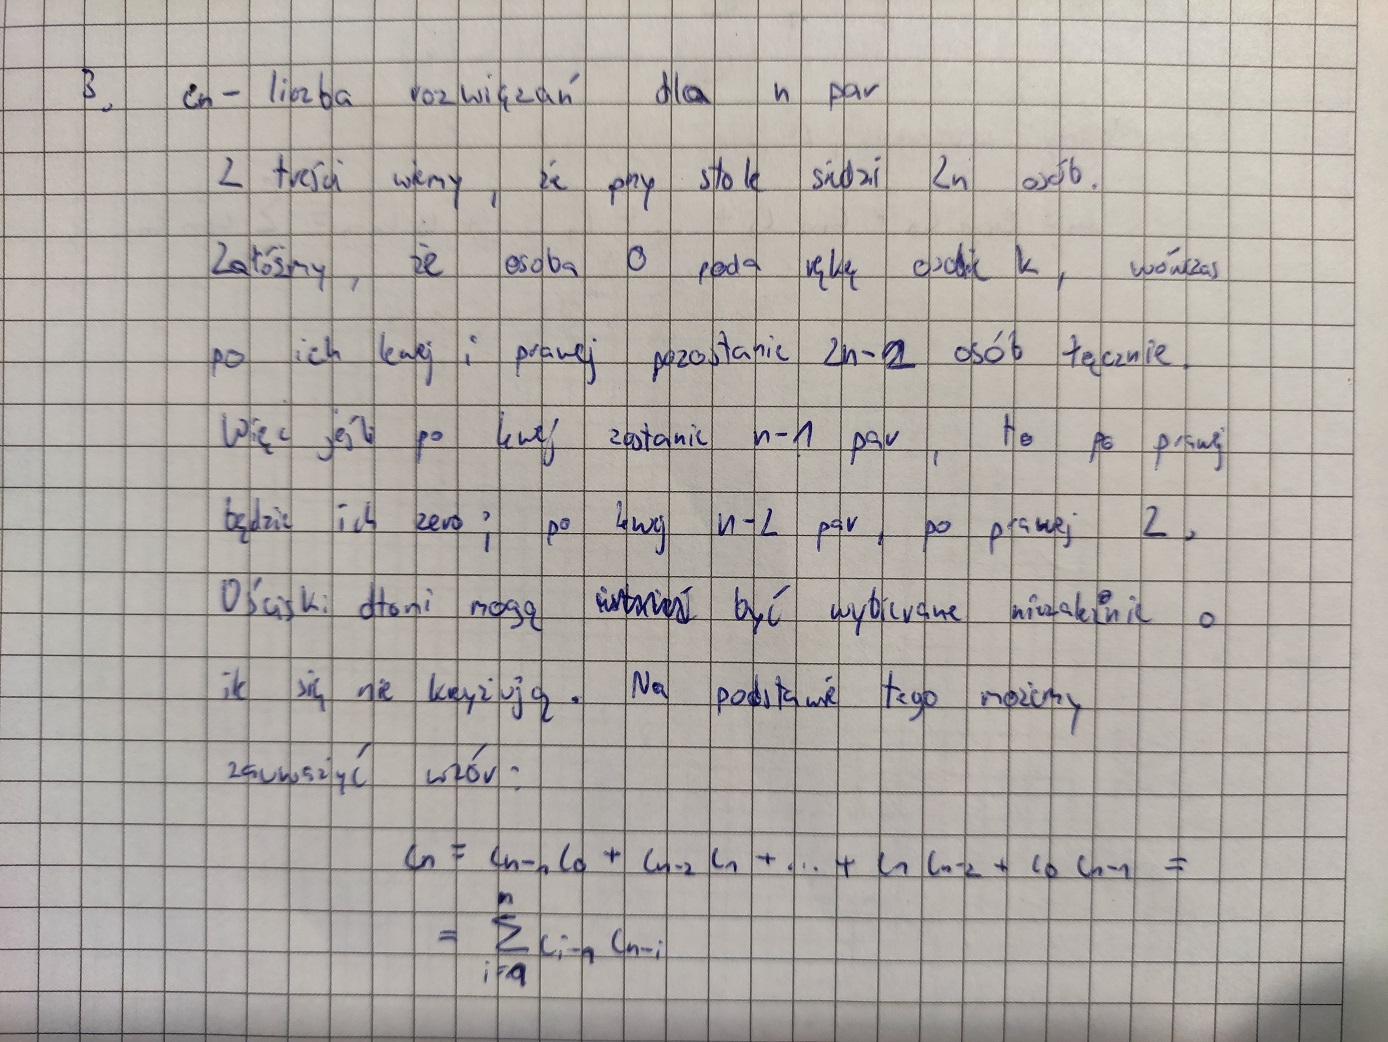 3. cn - liczba rozwiązań dla n par
Z treści wiemy, że przy stole siedzi 2n osób.
Załóżmy, że osoba 0 poda rękę osobie k, wówczas
po ich lewej i prawej pozostanie 2n-2 osób łącznie.
Więc jeśli po lewej zostanie n-1 par, to po prawej
będzie ich zero; po lewej n-2 par, po prawej 2,
Uściski dłoni mogą być wybierane niezależnie o
ile się nie krzyżują. Na podstawie tego możemy
zauważyć wzór:
cn = cn-1 c0 + cn-2 c1 + ... + c1 cn-2 + c0 cn-1 =
= n∑i=1 ci-1 cn-i